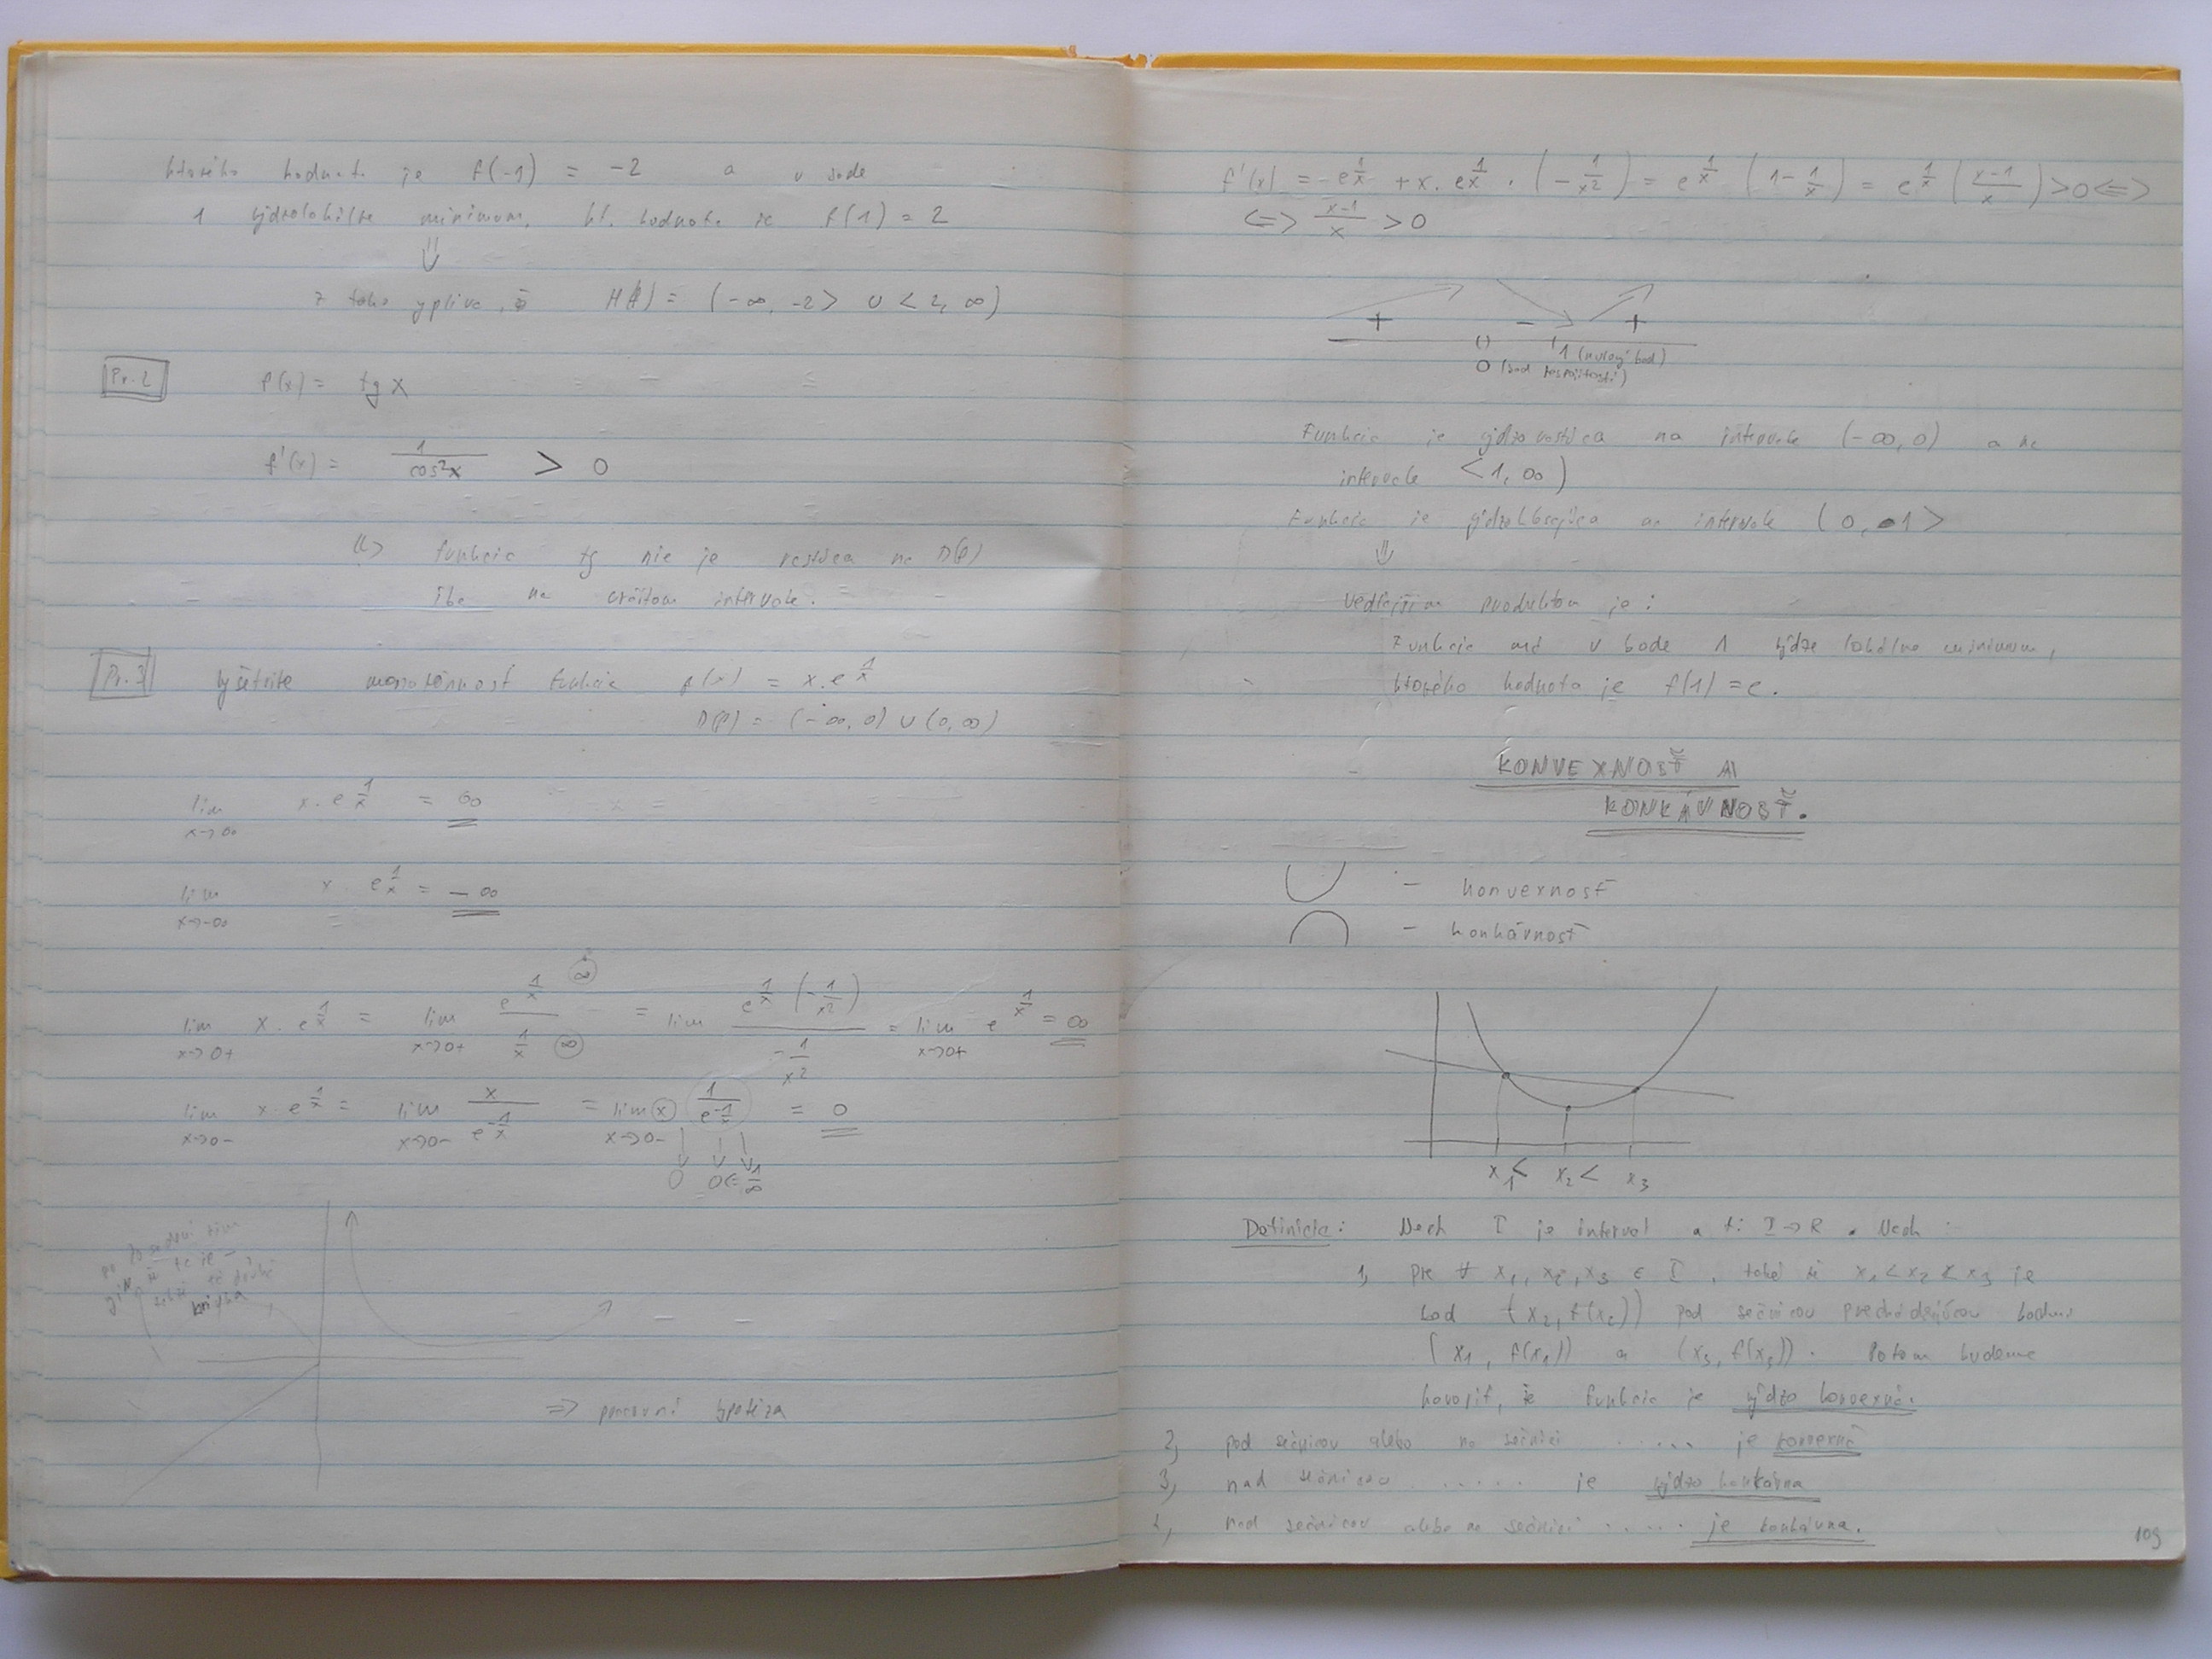 ktorého hodnota je f(-1) = -2 a v bode
1 minimum, kt. hodnota je f(1) = 2
⇓
z toho vyplíva, že H(f) = (-∞, -2> ∪ <2, ∞)
Pr. 2 f(x) = tg x
f'(x) = 1/cos²x > 0
funkcia tg nie je rastúca na D(f)
iba na určitom intervale.
Pr. 3 Vyšetrite monotónnosť funkcie f(x) = x.e^(1/x)
D(f) = (-∞, 0) ∪ (0, ∞)
lim x→∞ x.e^(1/x) = ∞
lim x→-∞ x e^(1/x) = -∞
lim x→0+ x.e^(1/x) = lim x→0+ e^(1/x) / (1/x) ∞ ∞ = lim e^(1/x) (-1/x²) / (-1/x²) = lim x→0+ e^(1/x) = ∞
lim x→0- x e^(1/x) = lim x→0- x / e^(-1/x) = lim x→0- x 1/e^(-1/x) = 0
0 0 ⇐ 1/∞
⇒ pracovní
f'(x) = e^(1/x) + x.e^(1/x) . (-1/x²) = e^(1/x) (1 - 1/x) = e^(1/x) ((x-1)/x) > 0 ⇔
⇔ (x-1)/x > 0
+ - +
1 (nulový bod)
0 (bod nespojitosti)
Funkcia je rýdzo rastúca na intervale (-∞, 0) a na
intervale <1, ∞)
Funkcia je na intervale (0, 1>
⇓
vedľajším produktom je:
Funkcia má v bode 1 rýdze lokálne minimum,
ktorého hodnota je f(1) = e.
KONVEXNOSŤ A
KONKÁVNOSŤ.
- konvexnosť
- konkávnosť
x₁ < x₂ < x₃
Definícia: Nech I je interval a f: I → R. Nech:
1, pre ∀ x₁, x₂, x₃ ∈ I, také že x₁ < x₂ < x₃ je
bod (x₂, f(x₂)) pod sečnicou prechádzajúcou bodmi
(x₁, f(x₁)) a (x₃, f(x₃)). Potom budeme
hovoriť, že funkcia je rýdzo konvexná.
2, pod sečnicou alebo na sečnici ..... je konvexná
3, nad sečnicou ..... je rýdzo konkávna
4, nad sečnicou alebo na sečnici ..... je konkávna.
109